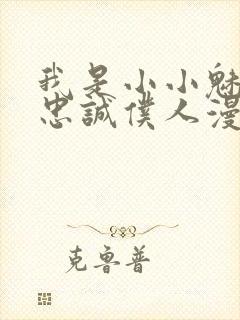 我是小小魅
忠誠僕人漫
克魯普